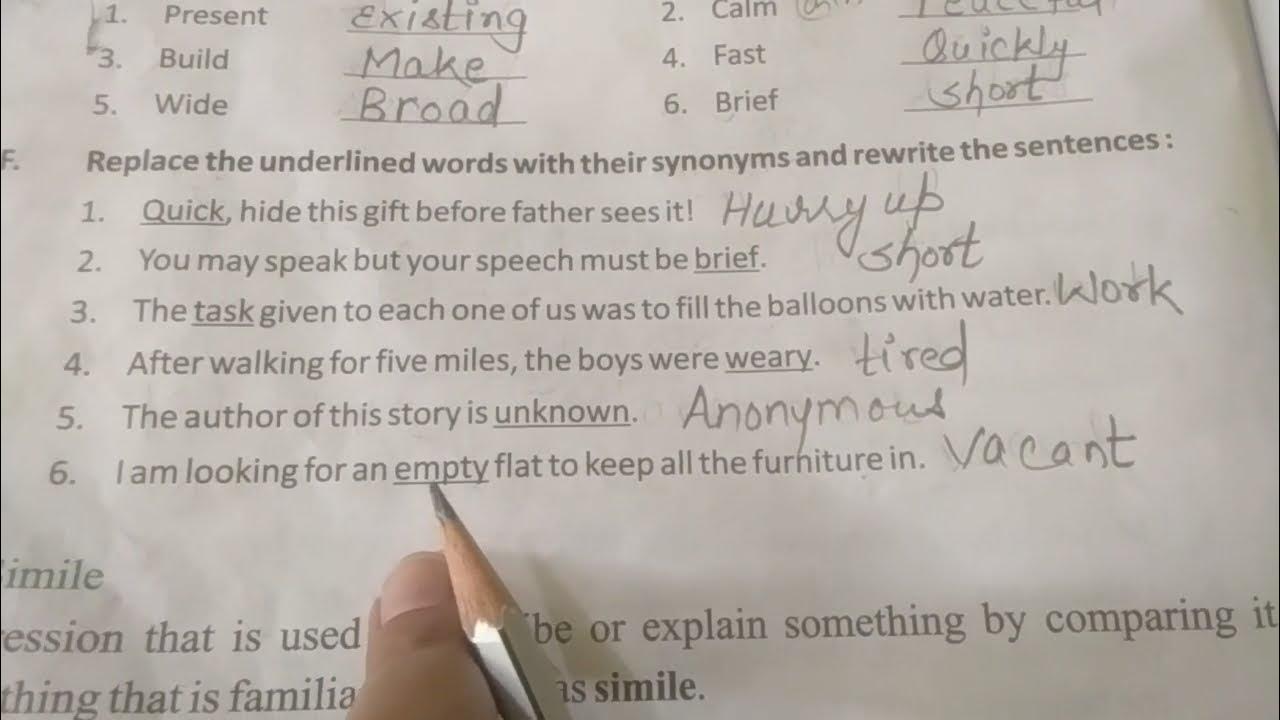 1. Present Existing 2. Calm
3. Build Make 4. Fast Quickly
5. Wide Broad 6. Brief short
F. Replace the underlined words with their synonyms and rewrite the sentences :
1. Quick, hide this gift before father sees it! Hurry up
2. You may speak but your speech must be brief. short
3. The task given to each one of us was to fill the balloons with water. Work
4. After walking for five miles, the boys were weary. tired
5. The author of this story is unknown. Anonymous
6. I am looking for an empty flat to keep all the furniture in. Vacant
imile
ession that is used be or explain something by comparing it
thing that is familia as simile.